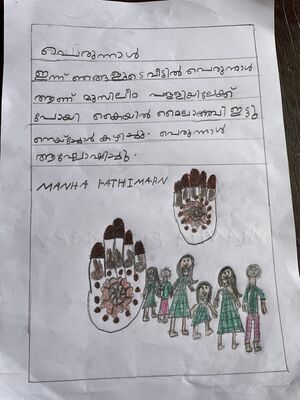 പെരുന്നാൾ
ഇന്ന് ഞങ്ങളുടെ വീട്ടിൽ പെരുന്നാൾ
ആണ് മുസ്ലീം പള്ളിയിലേക്ക്
പോയി കൈയിൽ മൈലാഞ്ചി ഇട്ടു
നെയ്ച്ചോർ കഴിച്ചു. പെരുന്നാൾ
ആഘോഷിച്ചു.
MANHA FATHIMARN